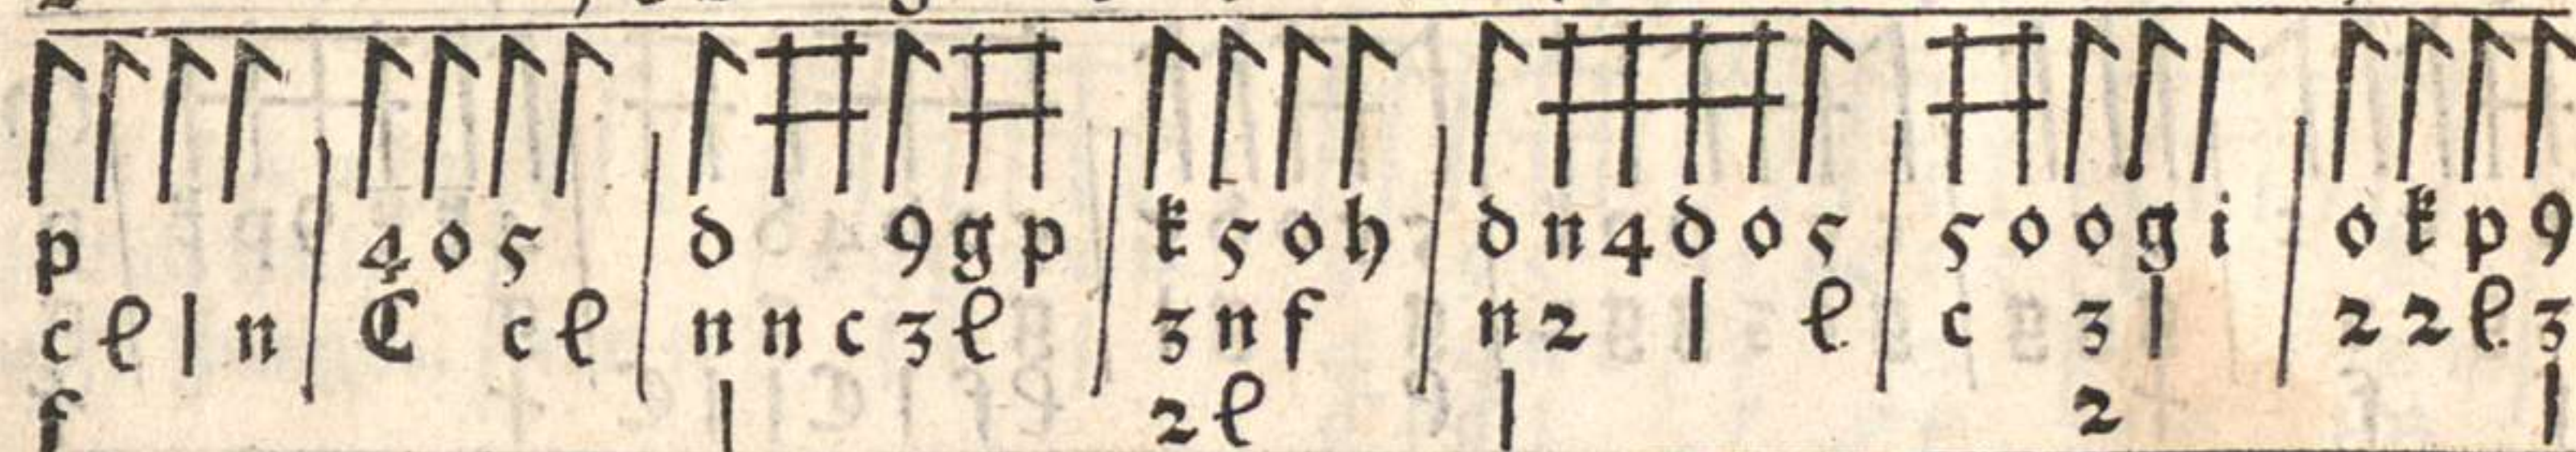 p | 4 o 5 | d 9 g p | k 5 o h | d n 4 d o 5 | 5 o o g i | o k p 9
c e l n | C c e | n n c 3 e | 3 n f | n 2 l e | c 3 l | 2 2 e 3
f l 2 e l 2 l